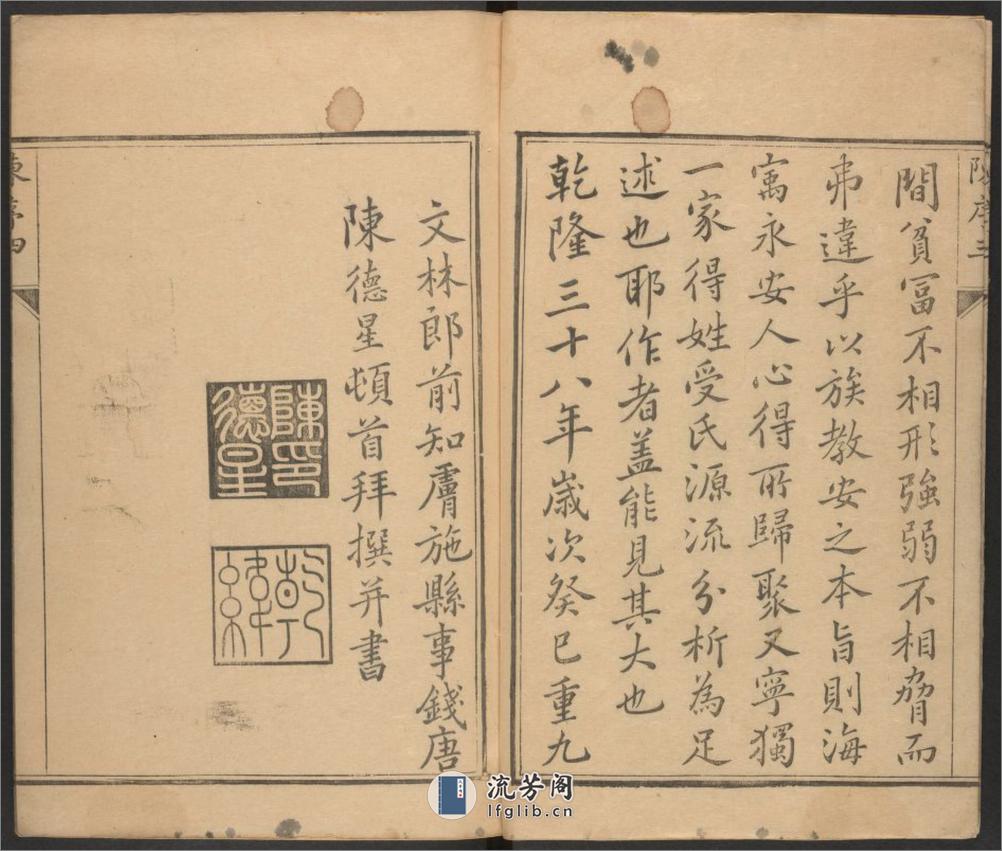 陳序三
間貧冨不相形強弱不相脅而
弗違乎以族教安之本旨則海
寓永安人心得所歸聚又寧獨
一家得姓受氏源流分析為足
述也耶作者盖能見其大也
乾隆三十八年歲次癸巳重九
文林郎前知膚施縣事錢唐
陳德星頓首拜撰并書
陳印德星
乾緯
陳序四
流芳阁
lfglib.cn